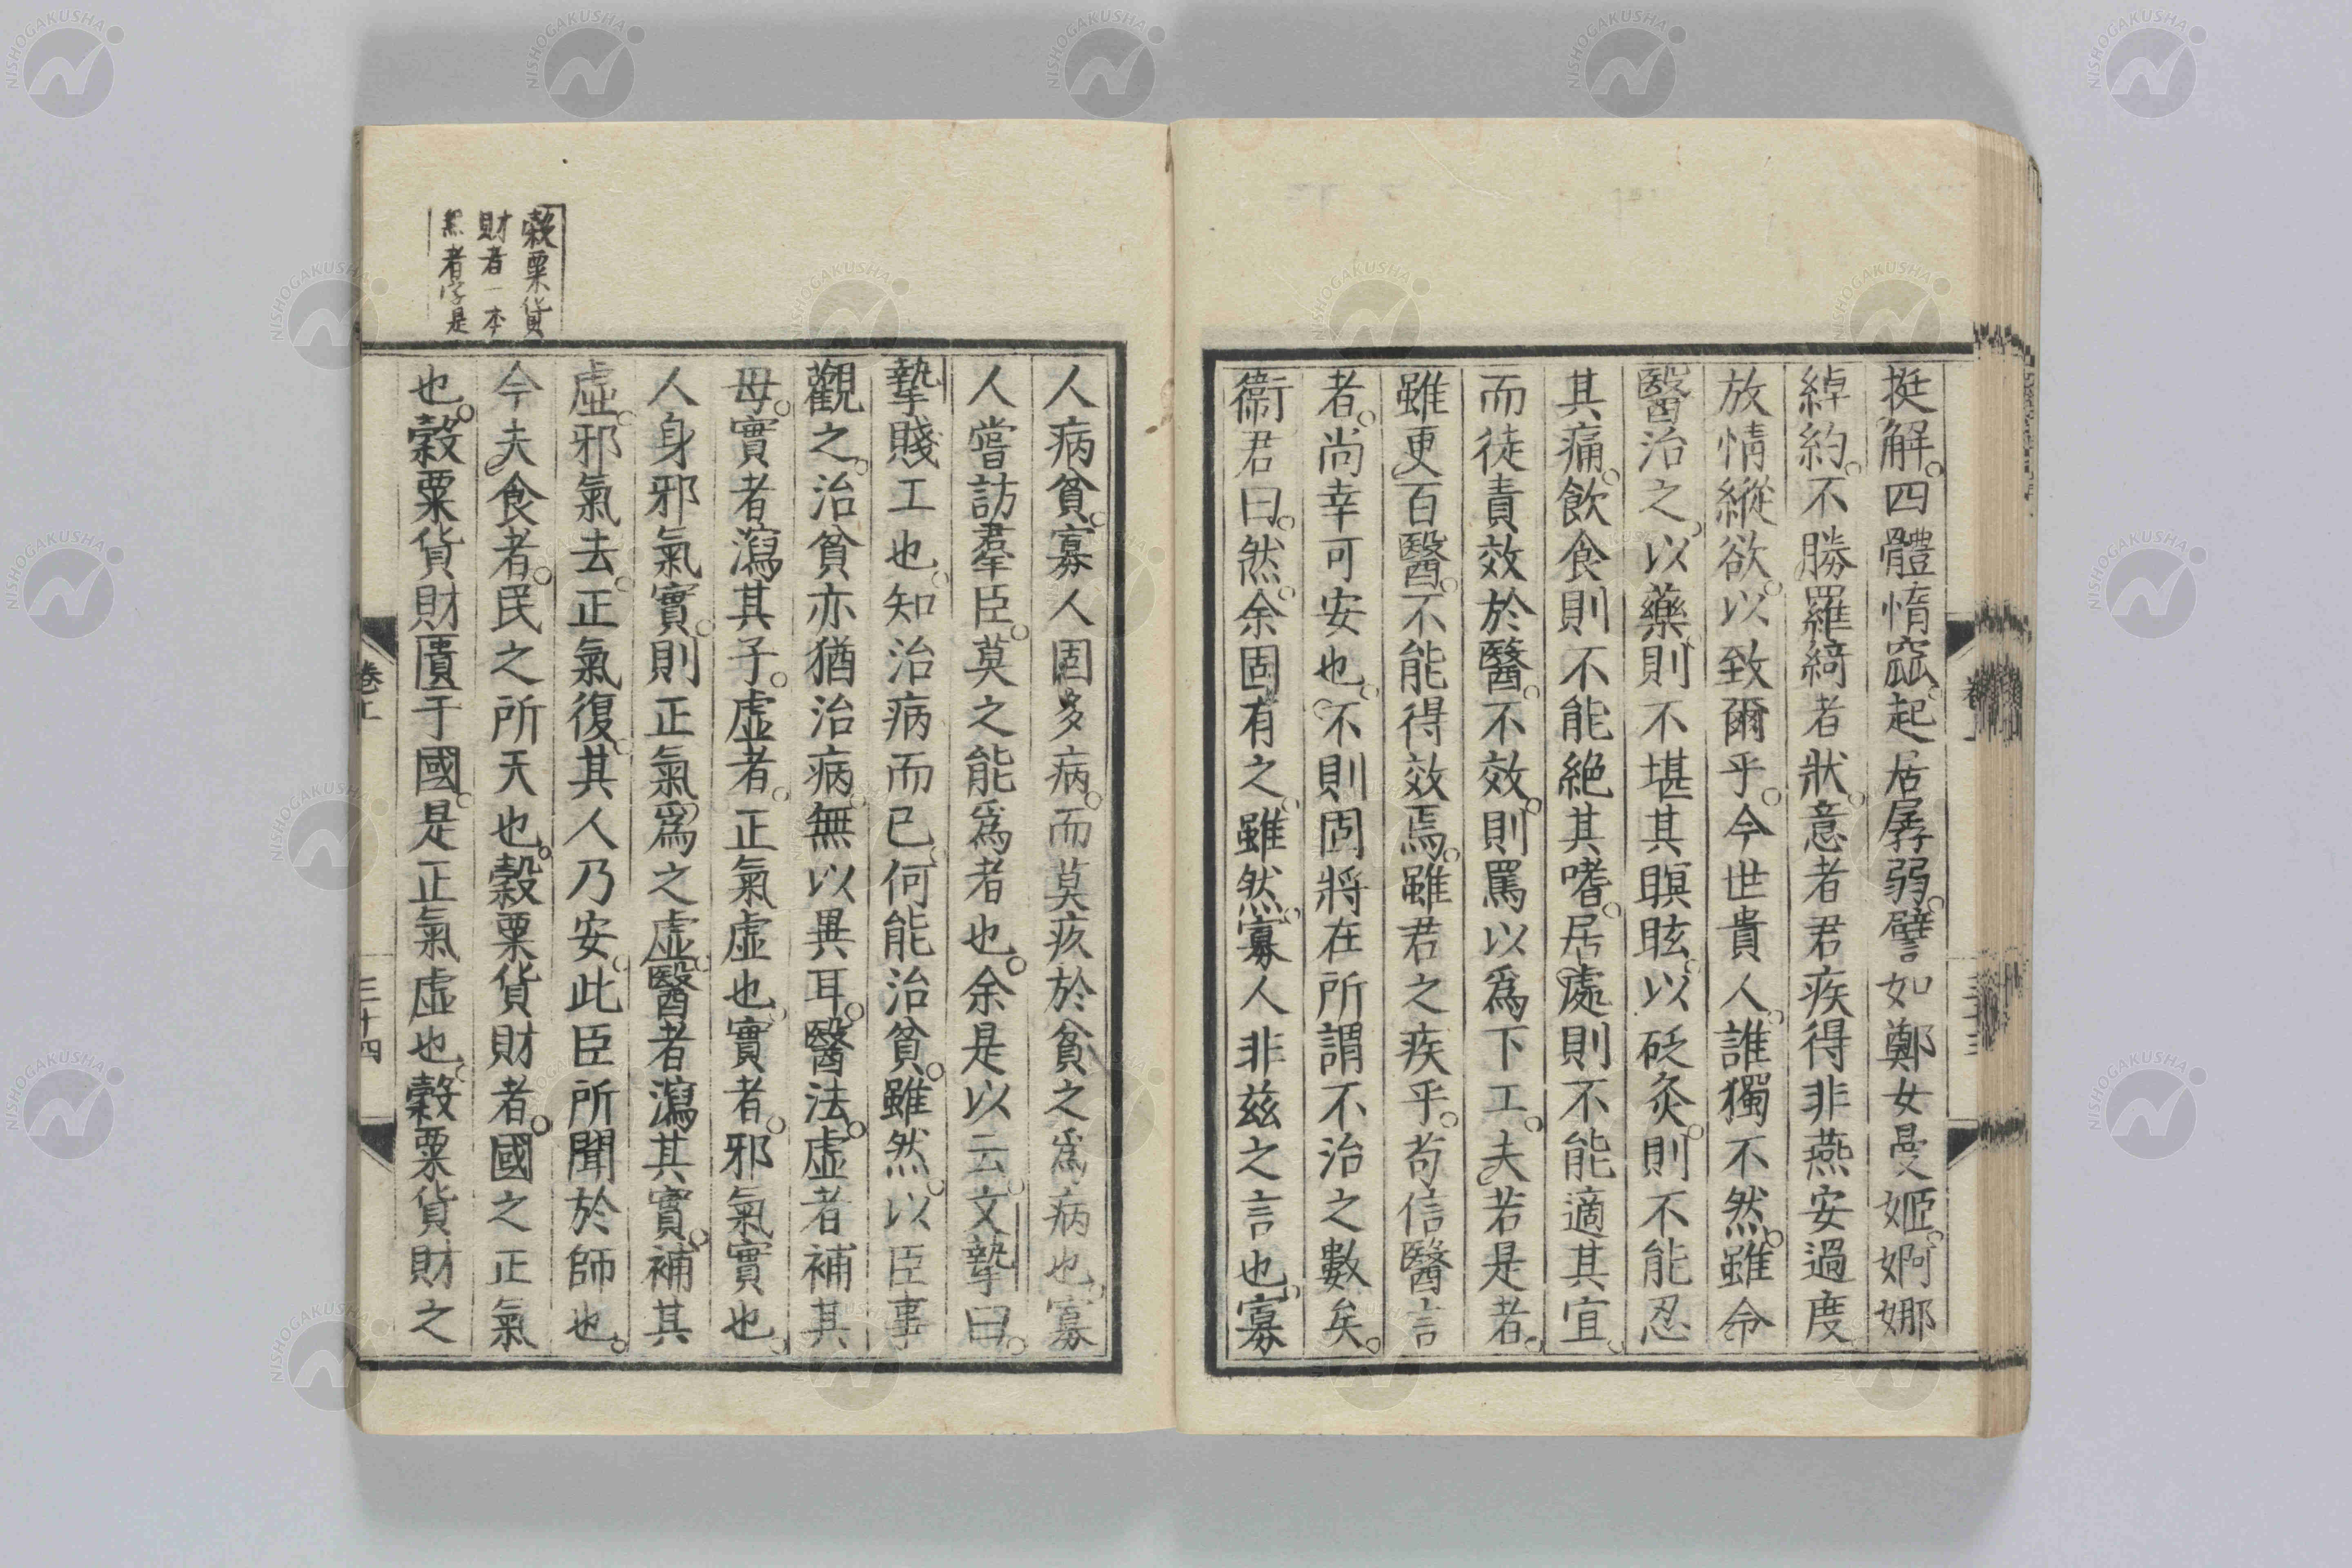 挺解。四體惰窳。起居孱弱。譬如鄭女曼姬。婀娜
綽約。不勝羅綺者狀。意者君疾得非燕安過度
放情縱欲。以致爾乎。今世貴人。誰獨不然。雖令
醫治之。以藥。則不堪其瞑眩。以砭灸。則不能忍
其痛。飲食則不能絶其嗜。居處則不能適其宜。
而徒責效於醫。不效。則罵以爲下工。夫若是者。
雖更百醫。不能得效焉。雖君之疾乎。苟信醫言
者。尚幸可安也。不則固將在所謂不治之數矣。
衞君曰。然。余固有之。雖然。寡人非玆之言也。寡
人病貧。寡人固多病。而莫疚於貧之爲病也。寡
人嘗訪羣臣。莫之能爲者也。余是以云。文摯曰。
摯賤工也。知治病而已。何能治貧。雖然。以臣事
觀之。治貧亦猶治病。無以異耳。醫法。虛者補其
母。實者瀉其子。虛者。正氣虛也。實者。邪氣實也。
人身邪氣實。則正氣爲之虛。醫者瀉其實。補其
虛。邪氣去。正氣復。其人乃安。此臣所聞於師也。
今夫食者。民之所天也。穀粟貨財者。國之正氣
也。穀粟貨財匱于國。是正氣虛也。穀粟貨財之
穀粟貨
財者一本
黑者字是
卷上
三十四
NISHOGAKUSHA